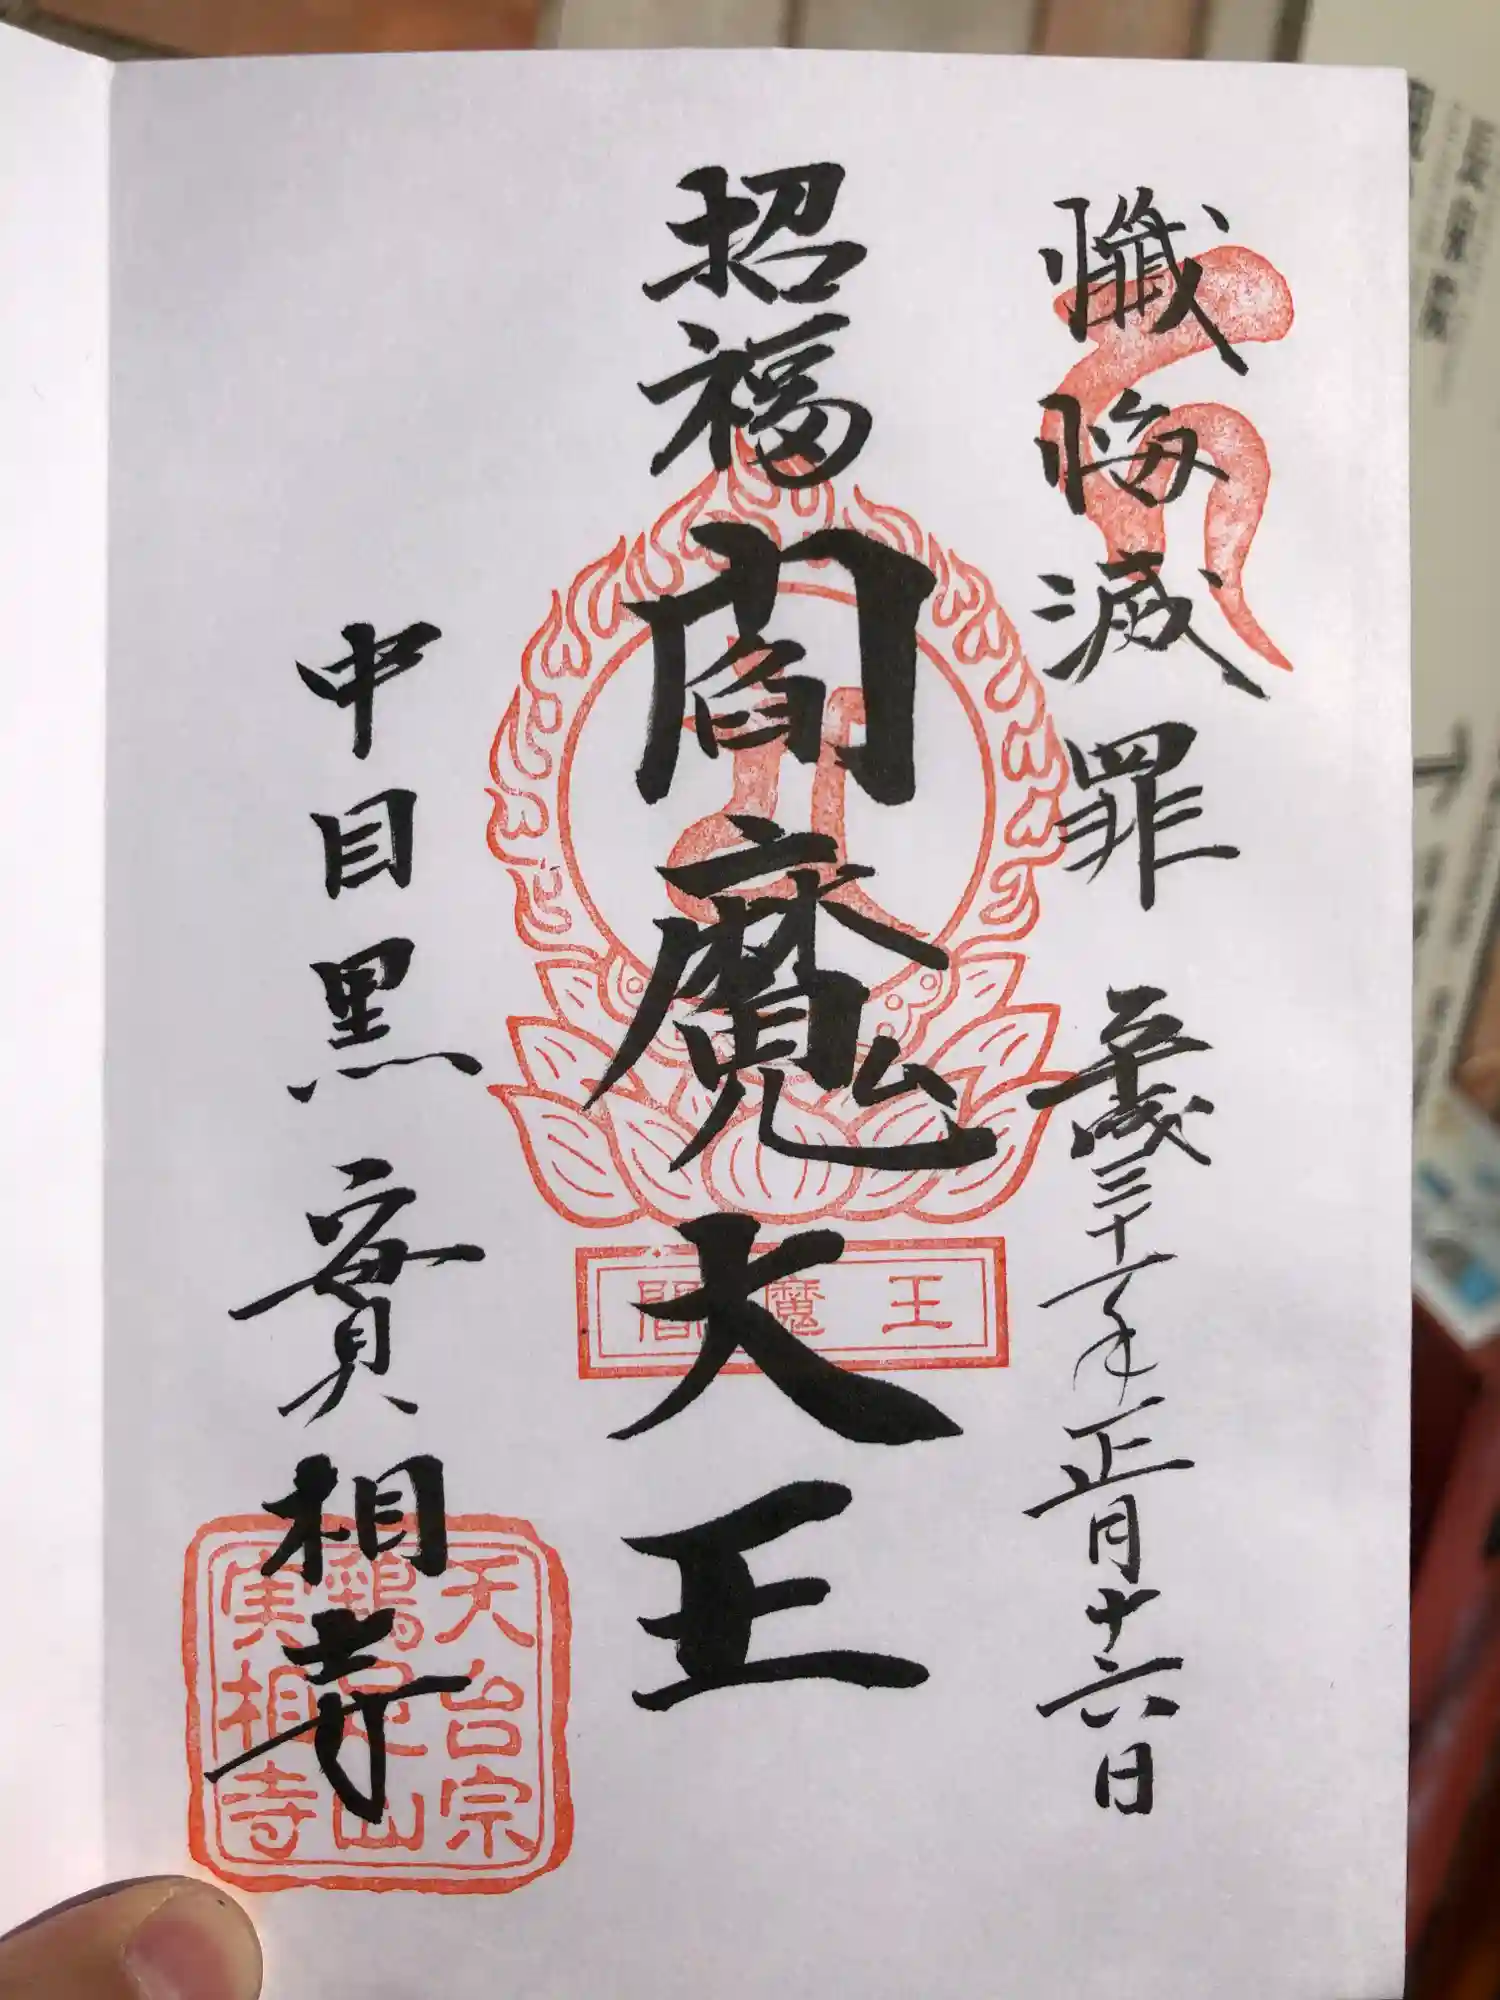 懺悔滅罪 平成三十一年正月十六日
招福 閻魔大王
閻魔王
中目黒 實相寺
天台宗
鶏足山
実相寺